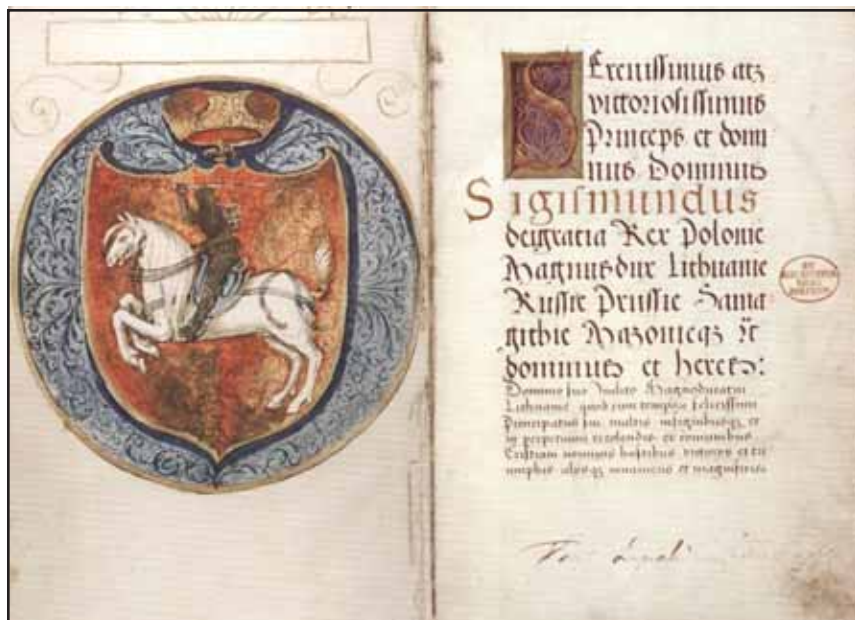 Serenissimus atq
victoriosissimus
Princeps et domi
nus Dominus
Sigismundus
dei gratia Rex Polonie
Magnus dux Lithuanie
Russie Prussie Sama
githie Mazovieq zc
dominus et heres:
Domino suo Magnoducatui
Lithuanie quod cum tempore felicissimi
Principatus sui multis insignibusq et
in perpetuum recolendis ex
Cristiani nominis hostibus victoriis et tri
umphis aliisq et magnificis